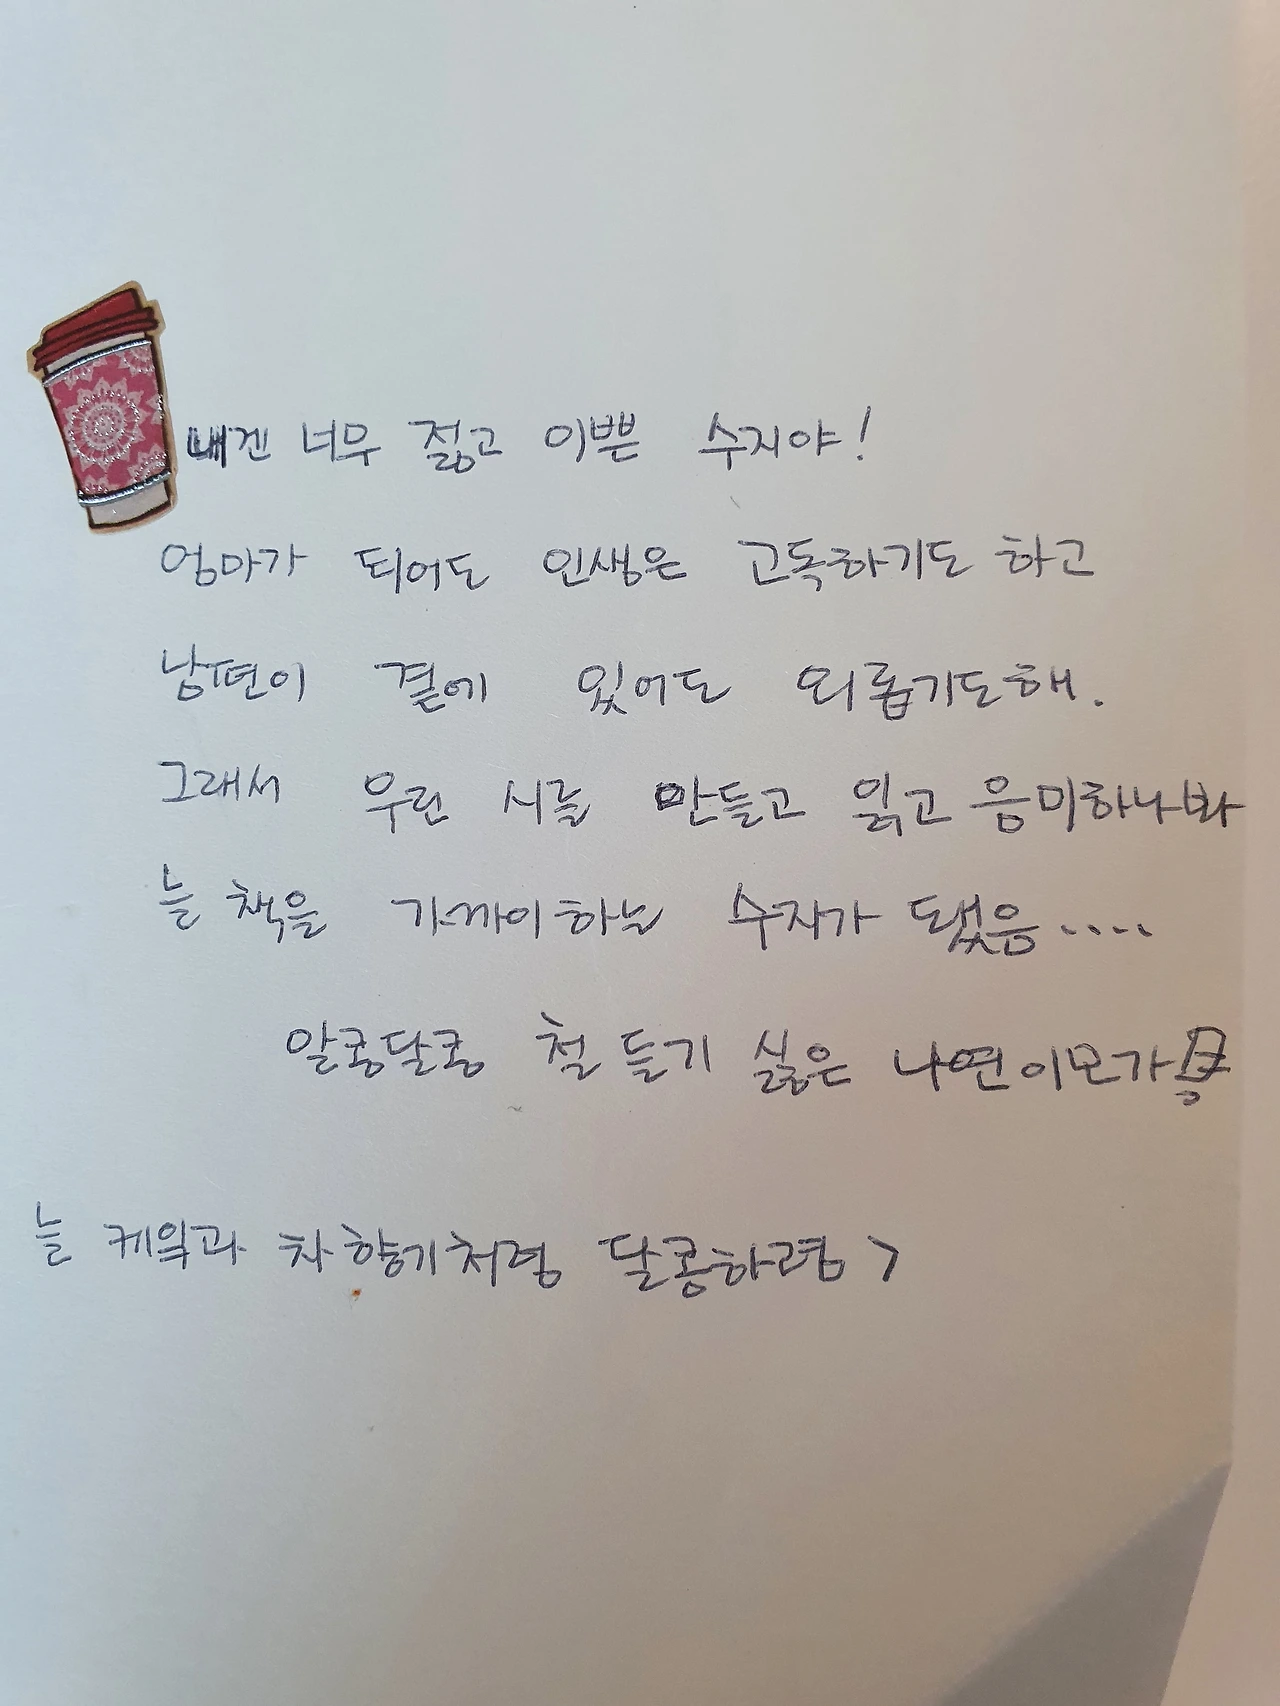 내겐 너무 젊고 이쁜 수지야!
엄마가 되어도 인생은 고독하기도 하고
남편이 곁에 있어도 외롭기도해.
그래서 우린 시를 만들고 읽고 음미하나봐
늘 책을 가까이하는 수지가 됐음....
알콩달콩 철들기 싫은 나연이모가
늘 케익과 차 향기처럼 달콤하렴 >